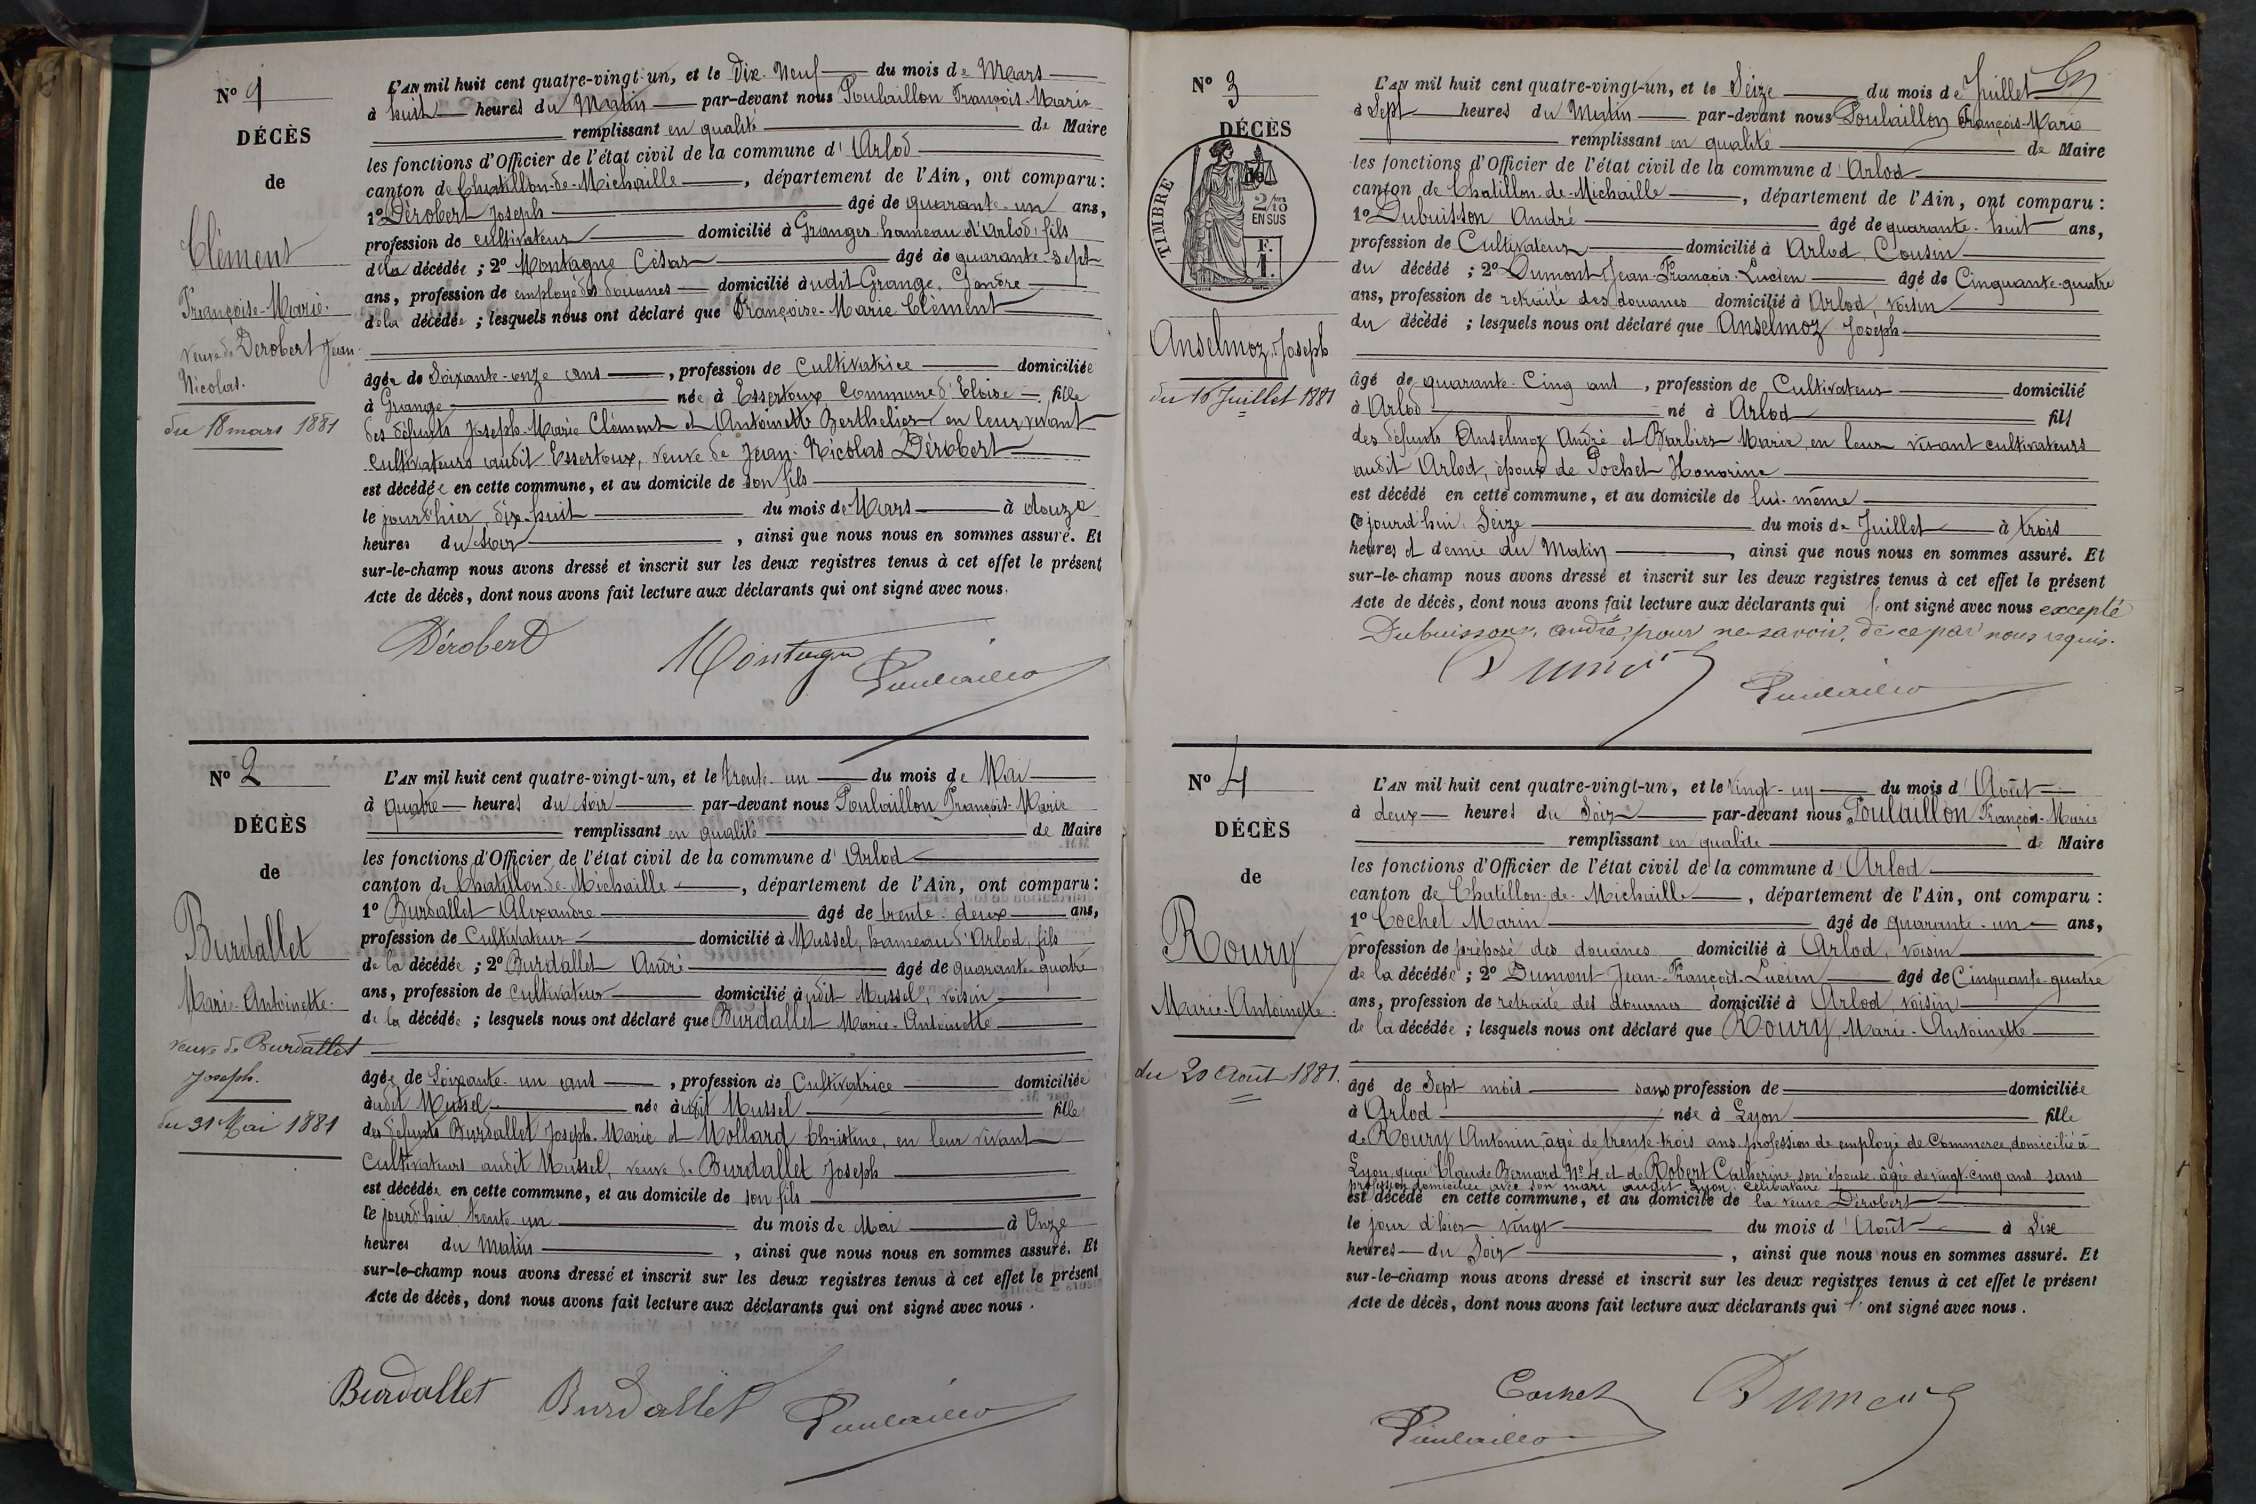 Nº 1
DÉCÈS
de
Clément
Françoise-Marie.
veuve de Dérobert Jean-
Nicolas.
du 18 mars 1881
L'AN mil huit cent quatre-vingt-un, et le Dix-Neuf du mois de Mars
à huit heures du Matin par-devant nous Poulaillon François-Marie
remplissant en qualité de Maire
les fonctions d'Officier de l'état civil de la commune d'Arlod
canton de Chatillon-de-Michaille, département de l'Ain, ont comparu:
1º Dérobert Joseph âgé de quarante-un ans,
profession de cultivateur domicilié à Granges hameau d'Arlod, fils
de la décédée ; 2º Montagne César âgé de quarante-sept
ans, profession de employé des douanes domicilié audit Grange, Gendre
de la décédée ; lesquels nous ont déclaré que Françoise-Marie Clément
âgée de Soixante-onze ans, profession de Cultivatrice domiciliée
à Grange née à Essertoux Commune d'Eloise fille
des défunts Joseph-Marie Clément et Antoinette Berthelier en leur vivant
cultivateurs audit Essertoux, veuve de Jean-Nicolas Dérobert
est décédée en cette commune, et au domicile de son fils
le jour d'hier, dix-huit du mois de Mars à douze
heures du soir, ainsi que nous nous en sommes assuré. Et
sur-le-champ nous avons dressé et inscrit sur les deux registres tenus à cet effet le présent
Acte de décès, dont nous avons fait lecture aux déclarants qui ont signé avec nous.
Dérobert Montagne Poulaillon
Nº 2
DÉCÈS
de
Burdallet
Marie-Antoinette.
veuve de Burdallet
Joseph.
du 31 Mai 1881
L'AN mil huit cent quatre-vingt-un, et le trente-un du mois de Mai
à quatre heures du soir par-devant nous Poulaillon François-Marie
remplissant en qualité de Maire
les fonctions d'Officier de l'état civil de la commune d'Arlod
canton de Chatillon-de-Michaille, département de l'Ain, ont comparu:
1º Burdallet Alexandre âgé de trente-deux ans,
profession de Cultivateur domicilié à Mussel, hameau d'Arlod, fils
de la décédée ; 2º Burdallet André âgé de quarante-quatre
ans, profession de Cultivateur domicilié audit Mussel, voisin
de la décédée ; lesquels nous ont déclaré que Burdallet Marie-Antoinette
âgée de Soixante-un ans, profession de Cultivatrice domiciliée
audit Mussel née audit Mussel fille
des défunts Burdallet Joseph-Marie et Mollard Christine, en leur vivant
Cultivateurs audit Mussel, veuve de Burdallet Joseph
est décédée en cette commune, et au domicile de son fils
ce jourd'hui, trente-un du mois de Mai à Onze
heures du Matin, ainsi que nous nous en sommes assuré. Et
sur-le-champ nous avons dressé et inscrit sur les deux registres tenus à cet effet le présent
Acte de décès, dont nous avons fait lecture aux déclarants qui ont signé avec nous.
Burdallet Burdallet Poulaillon
Nº 3
DÉCÈS
TIMBRE
2/10
EN SUS
F.
1.
Anselmoz, Joseph
du 16 Juillet 1881
L'AN mil huit cent quatre-vingt-un, et le Seize du mois de Juillet
à Sept heures du Matin par-devant nous Poulaillon François-Marie
remplissant en qualité de Maire
les fonctions d'Officier de l'état civil de la commune d'Arlod
canton de Chatillon-de-Michaille, département de l'Ain, ont comparu:
1º Dubuisson André âgé de quarante-huit ans,
profession de Cultivateur domicilié à Arlod, Cousin
du décédé ; 2º Dumont Jean-François-Lucien âgé de Cinquante-quatre
ans, profession de retraité des douanes domicilié à Arlod, voisin
du décédé ; lesquels nous ont déclaré que Anselmoz Joseph
âgé de quarante-Cinq ans, profession de Cultivateur domicilié
à Arlod né à Arlod fils
des défunts Anselmoz André et Barbier Marie, en leur vivant cultivateurs
audit Arlod, époux de Pochet Honorine
est décédé en cette commune, et au domicile de lui-même
ce jourd'hui, Seize du mois de Juillet à trois
heures et demie du Matin, ainsi que nous nous en sommes assuré. Et
sur-le-champ nous avons dressé et inscrit sur les deux registres tenus à cet effet le présent
Acte de décès, dont nous avons fait lecture aux déclarants qui l'ont signé avec nous excepté
Dubuisson, André, pour ne savoir, de ce par nous requis.
Dumont Poulaillon
Nº 4
DÉCÈS
de
Roury
Marie-Antoinette.
du 20 Août 1881.
L'AN mil huit cent quatre-vingt-un, et le vingt-un du mois d'Août
à deux heures du Soir par-devant nous Poulaillon François-Marie
remplissant en qualité de Maire
les fonctions d'Officier de l'état civil de la commune d'Arlod
canton de Chatillon-de-Michaille, département de l'Ain, ont comparu:
1º Cochet Marin âgé de quarante-un ans,
profession de préposé des douanes domicilié à Arlod, voisin
de la décédée ; 2º Dumont Jean-François-Lucien âgé de Cinquante-quatre
ans, profession de retraité des douanes domicilié à Arlod, voisin
de la décédée ; lesquels nous ont déclaré que Roury, Marie-Antoinette
âgé de Sept mois sans profession de domiciliée
à Arlod née à Lyon fille
de Roury Antonin, âgé de trente-trois ans, profession de employé de Commerce, domicilié à
Lyon, quai Claude Bernard Nº 4 et de Robert Catherine son épouse âgée de vingt-cinq ans sans
profession domiciliée avec son mari audit Lyon. célibataire
est décédé en cette commune, et au domicile de la veuve Dérobert
le jour d'hier vingt du mois d'Août à Six
heures du Soir, ainsi que nous nous en sommes assuré. Et
sur-le-champ nous avons dressé et inscrit sur les deux registres tenus à cet effet le présent
Acte de décès, dont nous avons fait lecture aux déclarants qui l'ont signé avec nous.
Cochet Dumont
Poulaillon